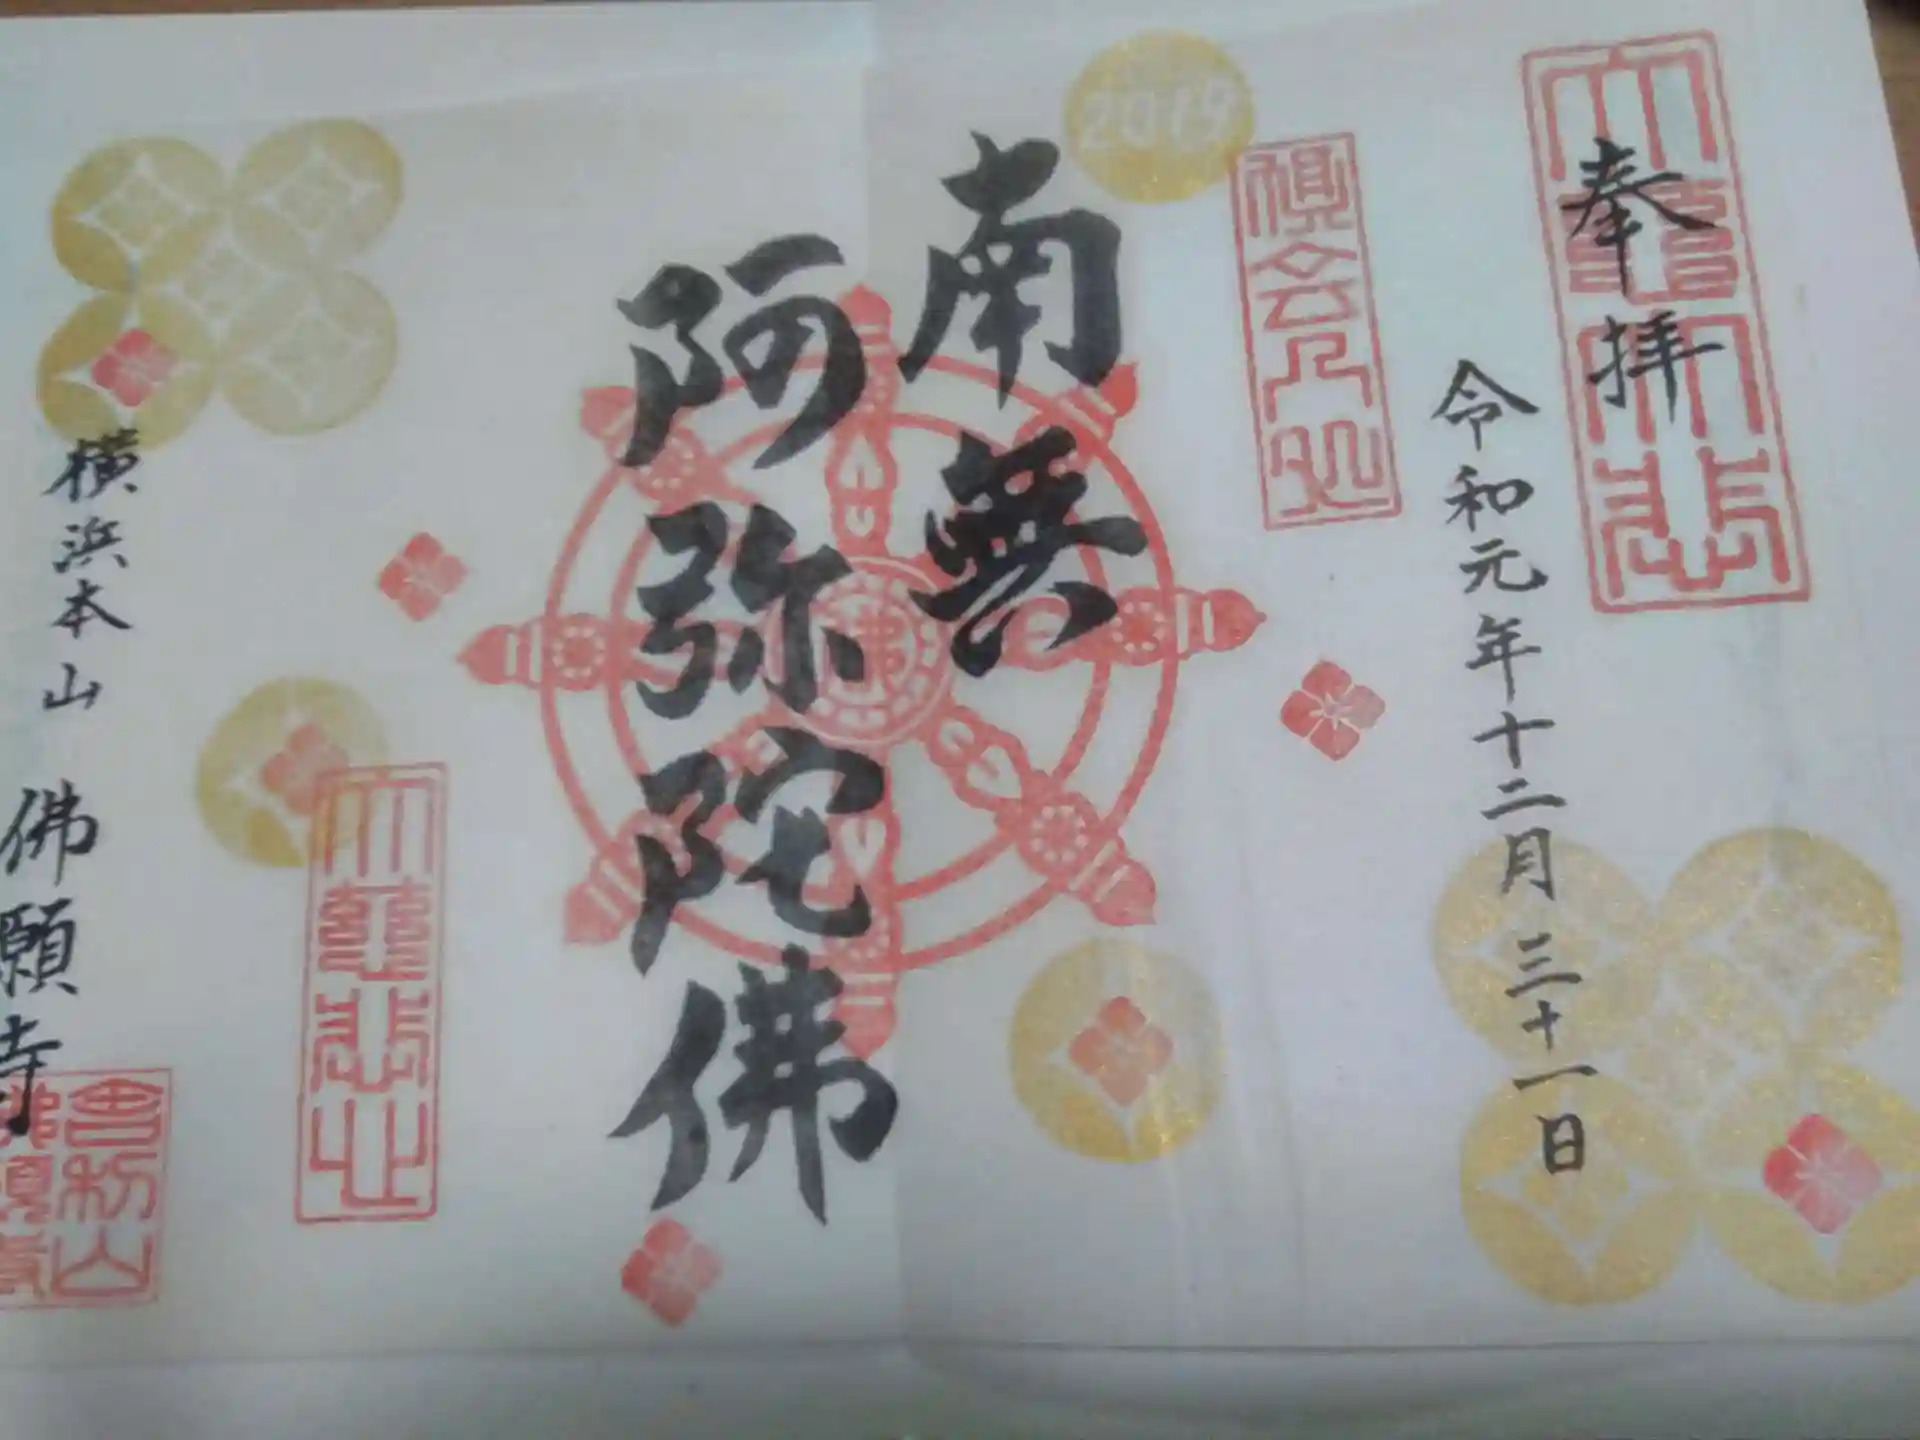 奉拝
令和元年十二月三十一日
2019
倶会一処
南無
阿弥陀佛
佛
横浜本山 佛願寺